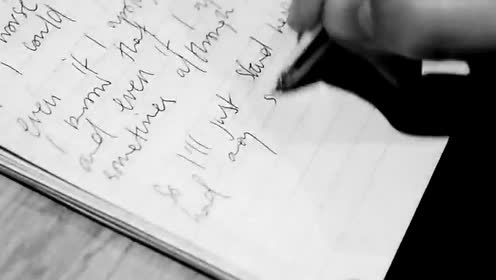 worse
I could
even if I
I know that
and even if I
sometimes although
So I'll just stand
had any s